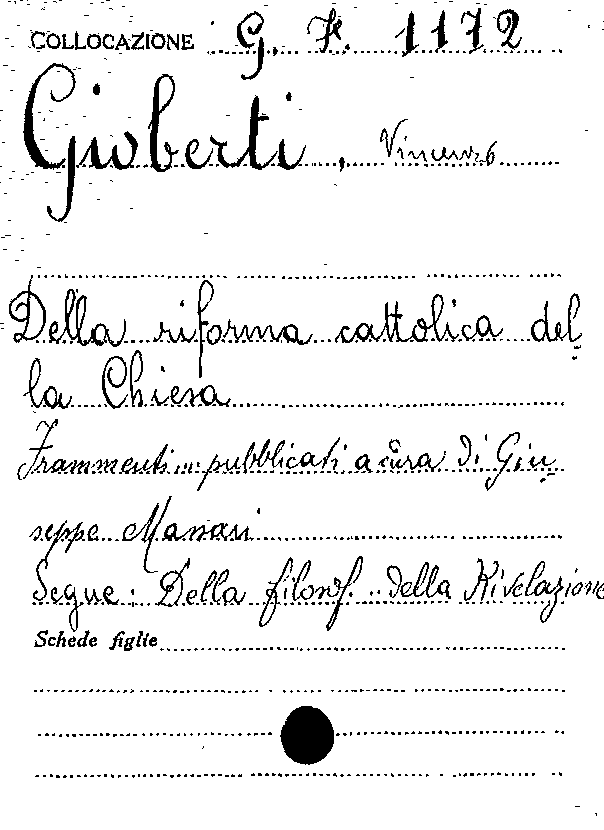 COLLOCAZIONE G. F. 1172
Gioberti, Vincenzo
Della riforma cattolica del
la Chiesa
Frammenti... pubblicati a cura di Giu
seppe Massari
Segue: Della filosof. della Rivelazione
Schede figlie